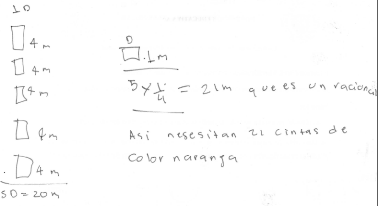 1D
4m
4m
4m
4m
4m
5D = 20m
D
.1m
5 × 1/4 = 21m que es un racional
Asi nesesitan 21 cintas de
color naranga